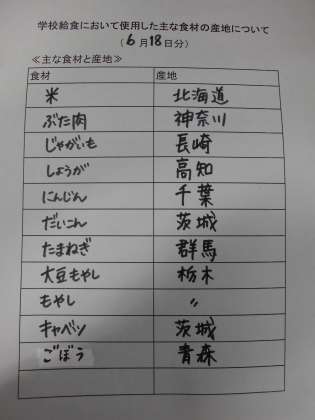 学校給食において使用した主な食材の産地について
(6月18日分)
≪主な食材と産地≫
食材 産地
米 北海道
ぶた肉 神奈川
じゃがいも 長崎
しょうが 高知
にんじん 千葉
だいこん 茨城
たまねぎ 群馬
大豆もやし 栃木
もやし 〃
キャベツ 茨城
ごぼう 青森